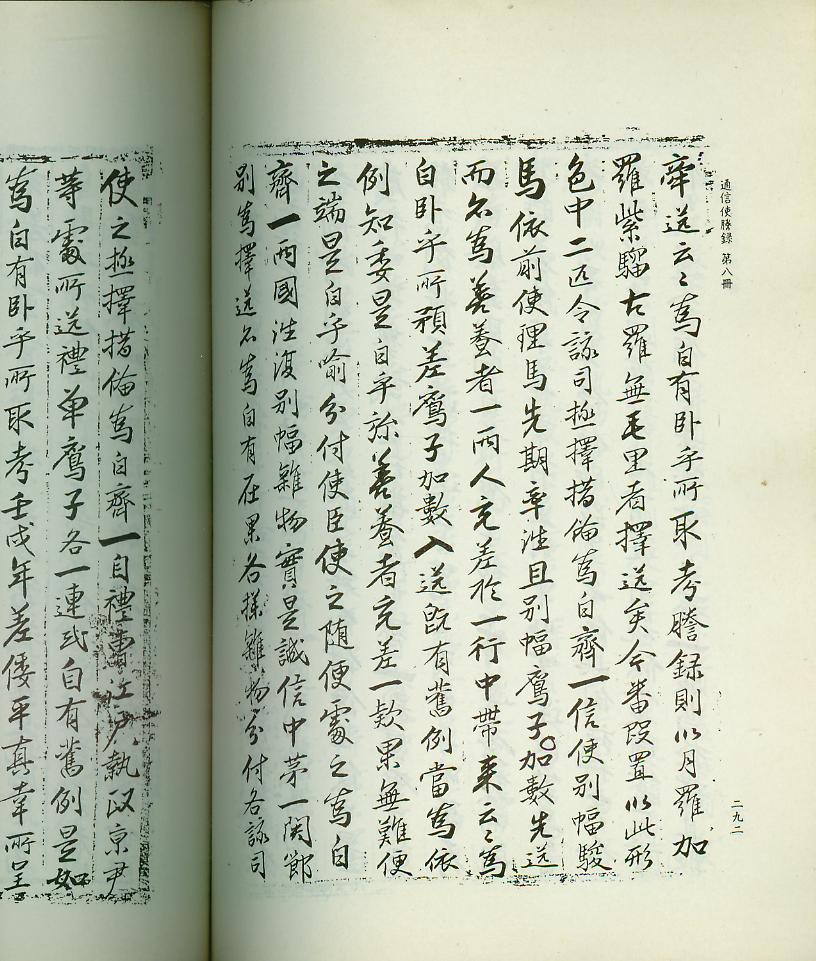 通信使謄錄 第八冊
二九二
率送云云爲白有卧乎所取考謄錄則以月羅加
羅紫騮古羅無毛里者擇送矣今番段置以此形
色中二匹令該司極擇措備爲白齊一信使別幅駿
馬依前使理馬先期率往且別幅鷹子加數先送
而名爲善養者一兩人充差於一行中帶來云云爲
白卧乎所預差鷹子加數入送旣有舊例當爲依
例知委是白乎旀善養者充差一款果無難便
之端是白乎喩分付使臣使之隨便處之爲白
齊一兩國往復別幅雜物實是誠信中第一関鄭
別爲擇送爲白有在果各樣雜物分付各該司
使之極擇措備爲白齊一自禮曹江戶執政京尹
等處所送禮單鷹子各一連式自有舊例是如
爲白有卧乎所取考壬戌年差倭平眞幸所呈